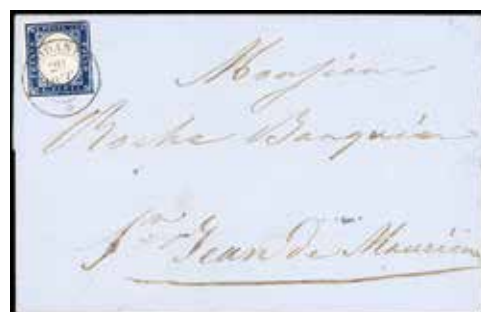 Monsieur
Roche Banquier
St Jean de Maurienne